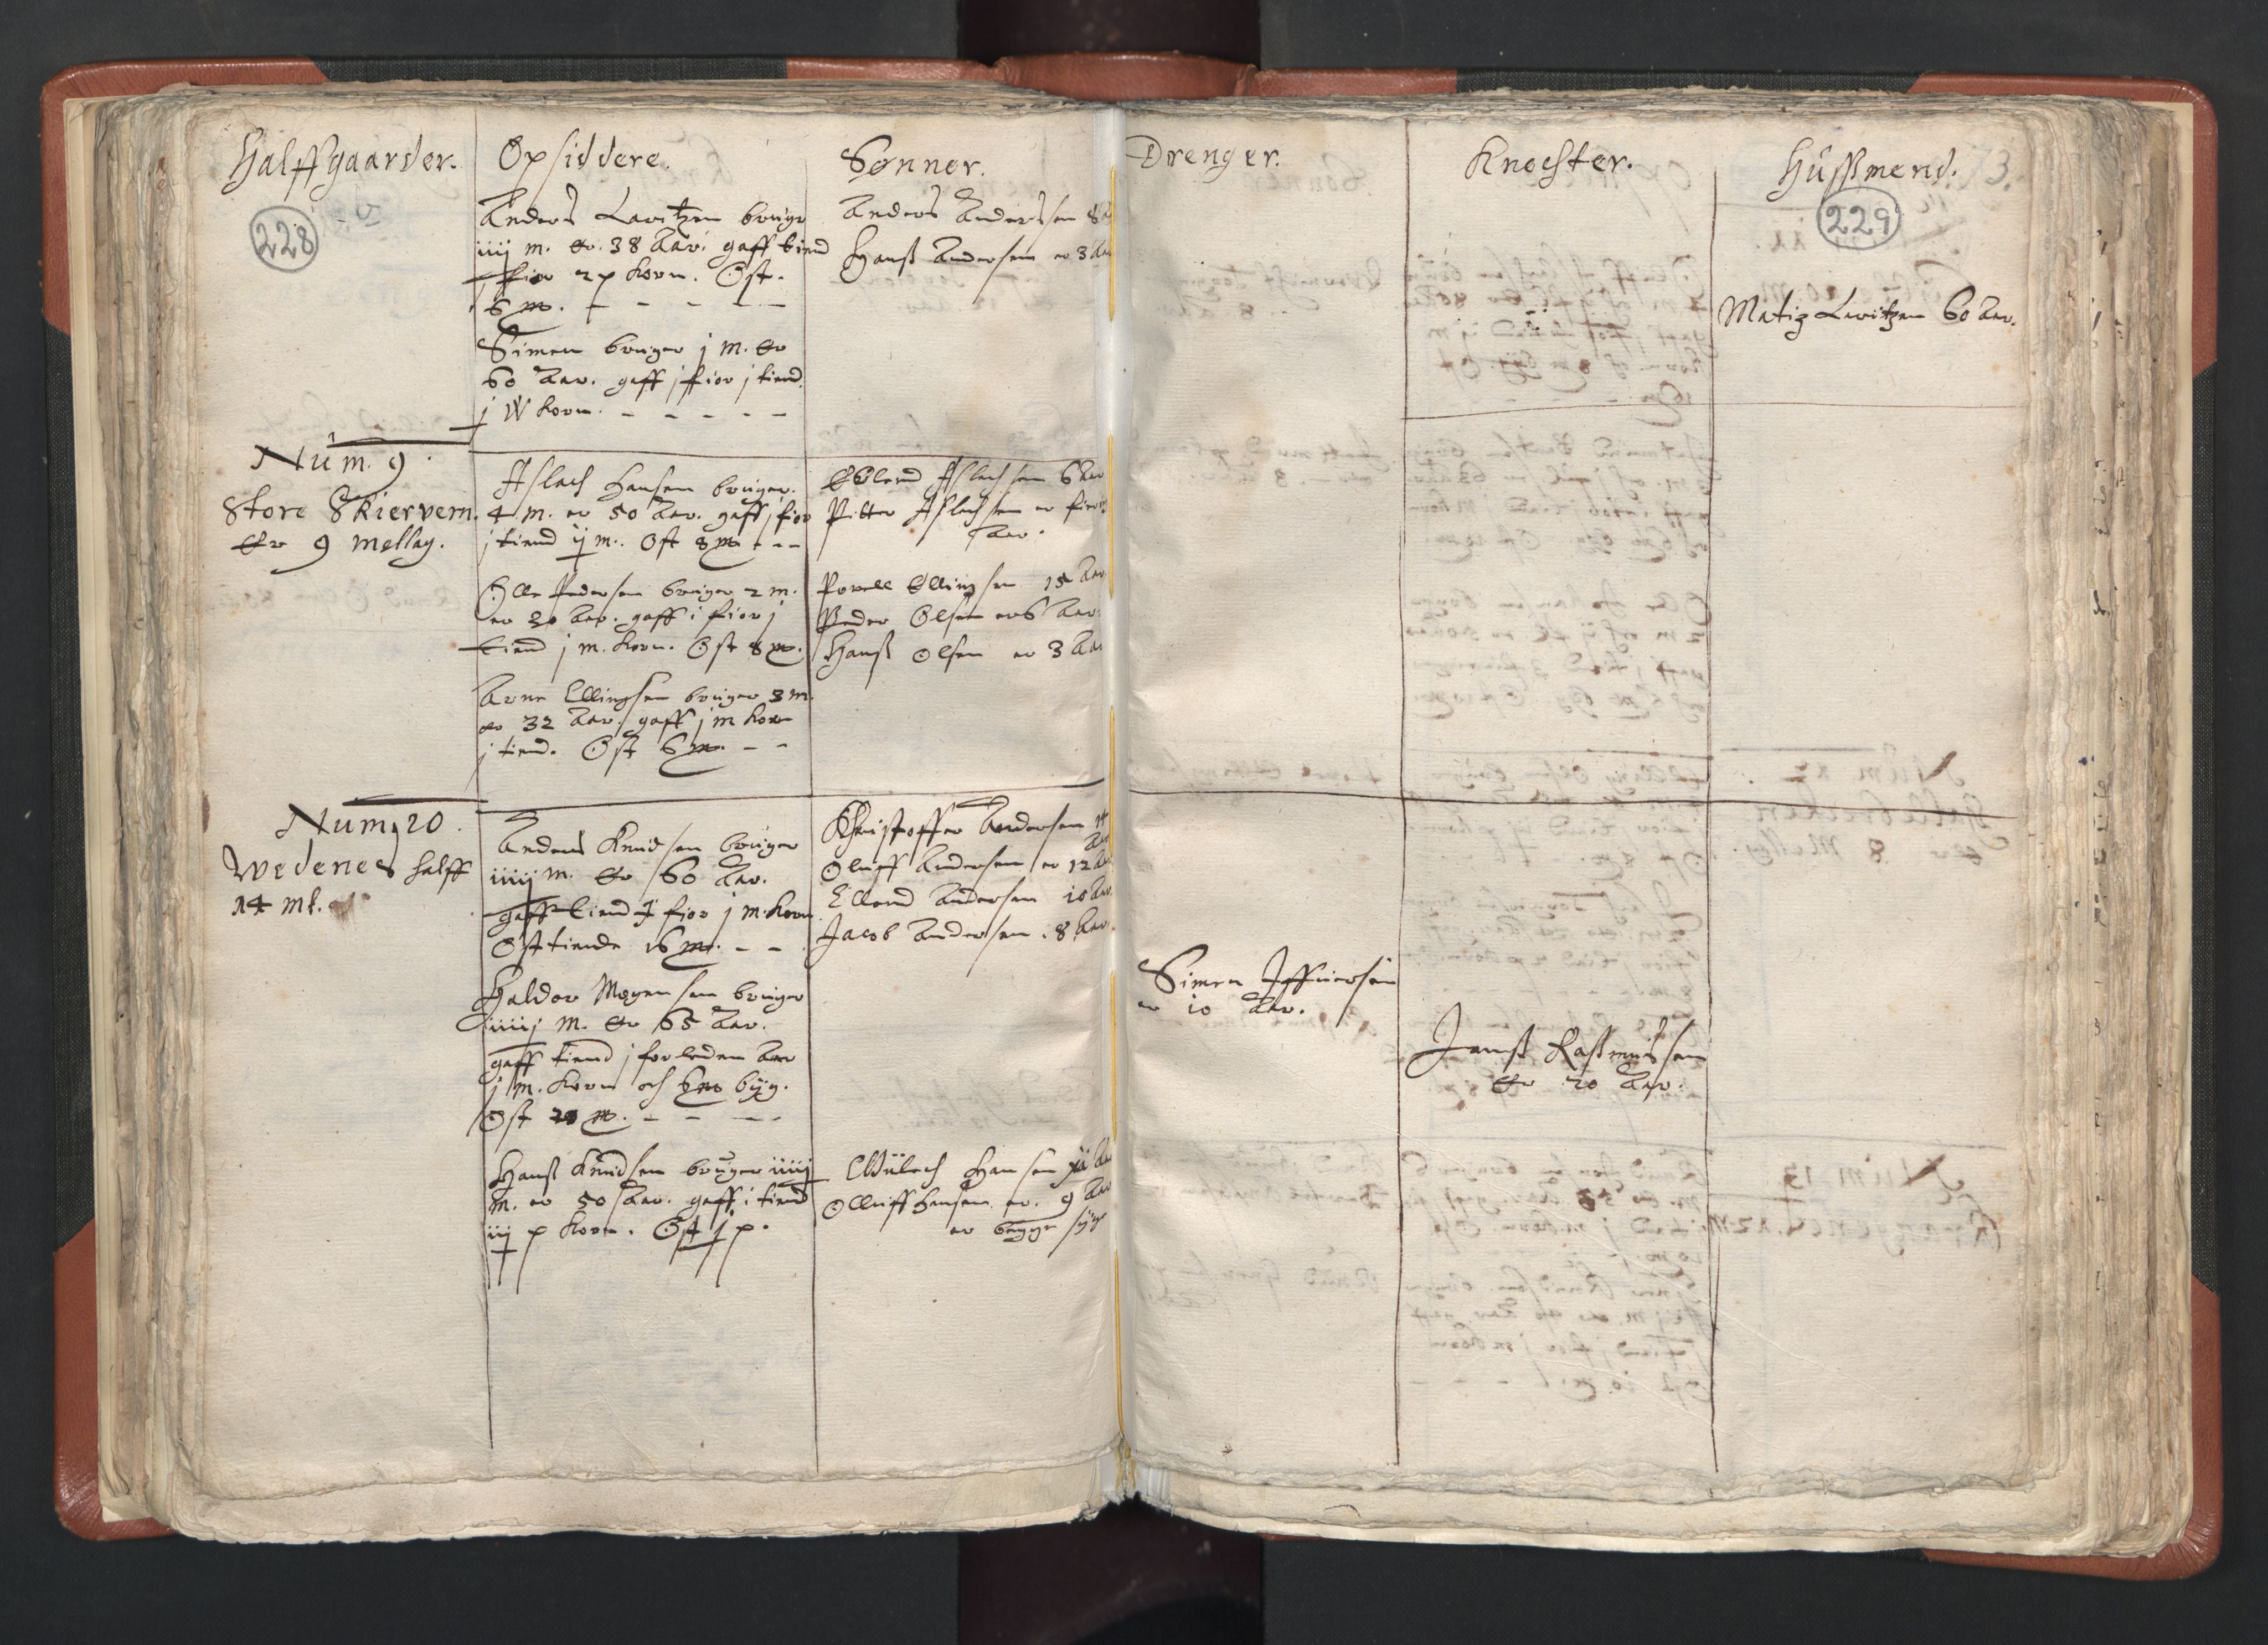 Halffgaarder.
Opsiddere.
Sønner.
Drenger.
Knechter.
Hüssmend.
228
229
Anders Lauritzen bruger
iiij m. er 38 Aar. gaff tiend
i fior 2 p korn. Ost.
6 m. - - - - -
Simen bruger j m. er
60 Aar. gaff j fior j tiend
j W korn. - - - - -
Anders Anderssen 8
Hanss Andersen er 3 Aar
Matiz Lauritzen 60 Aar.
Num. 9.
Store Skiervem.
er 9 mellag.
Aslach Hansen bruger.
4 m. er 50 Aar. gaff j fior
j tiend ij m. Ost 8 m. - - -
Olle Pedersen bruger 2 m.
er 30 Aar. gaff i fior j
tiend j m. korn. Ost 8 m.
Arne Ellingsen bruger 3 m.
er 32 Aar. gaff j m korn
j tiend. Ost 6 m. - -
Erlend Aslachsen 6 Aar
Pitter Aslachsen er fire
Aar.
Povell Ellingsen 15 Aar
Peder Olsen er 6 Aar.
Hanss Olsen er 3 Aar
Num. 20.
Wedenes halff
14 ml.
Anders Knudsen bruger
iiiij m. er 60 Aar.
gaff tiend I fior j m. korn
Ost tiende 16 m. - -
Haldor Mogensen bruger
iiiij m. er 65 Aar.
gaff tiend j forleden Aar
j m. korn och 6 m byg.
Ost 20 m. - - - -
Hanss Knudsen bruger iiiij
m. er 50 Aar. gaff i tiend
iij p korn. Ost j p.
Christoffer Andersen 14
Aar
Oluff Andersen er 12 Aar
Ellend Andersen 10 Aar.
Jacob Andersen. 8 Aar.
Simen Iffuersen
er 10 Aar.
Janss Rassmussen
er 20 Aar.
Hansen
Olluff Hansen er. 9 Aar
er begge